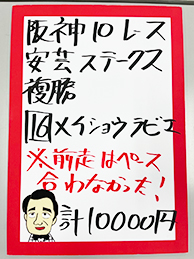 阪神10レース
安芸ステークス
複勝
16メイショウラビエ
※前走はペース
合わなかった!
計10000円